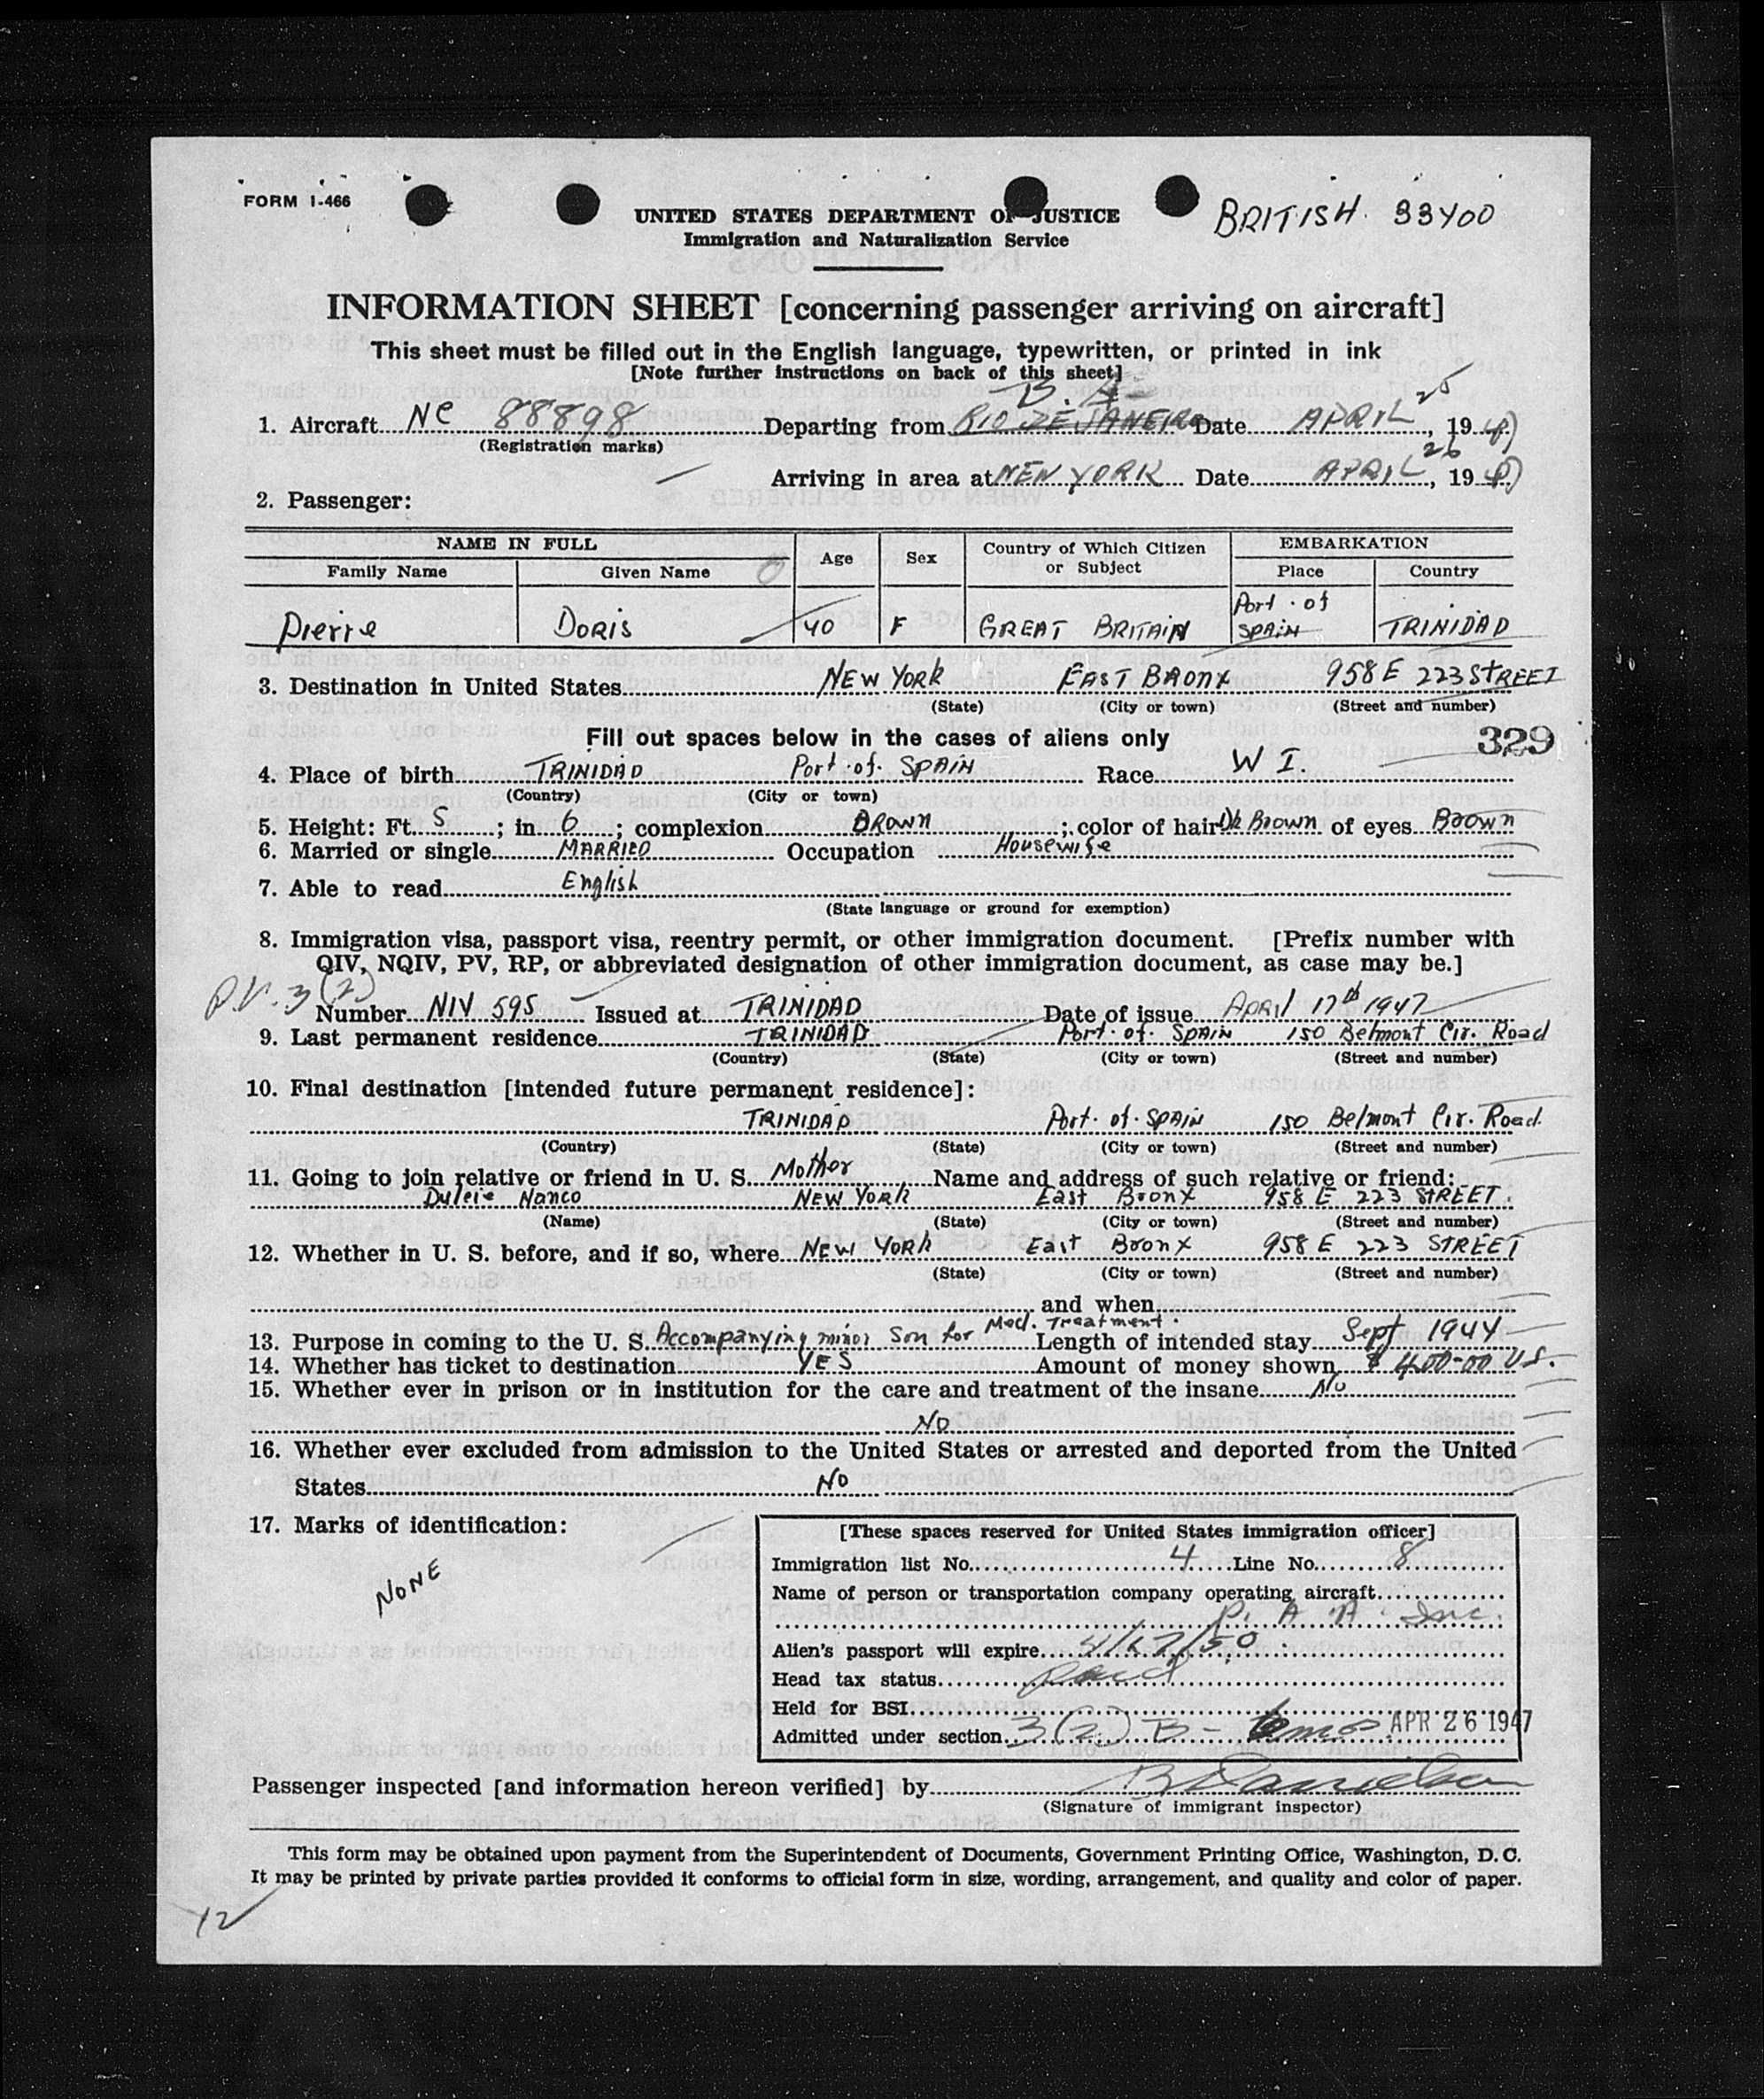 FORM I-466
UNITED STATES DEPARTMENT OF JUSTICE
Immigration and Naturalization Service
BRITISH. 33400
INFORMATION SHEET [concerning passenger arriving on aircraft]
This sheet must be filled out in the English language, typewritten, or printed in ink
[Note further instructions on back of this sheet]
B. A.
1. Aircraft NC 88898 Departing from RIO DE JANEIRO Date APRIL 25, 1947
(Registration marks)
Arriving in area at NEW YORK Date APRIL 26, 1947
2. Passenger:
NAME IN FULL Age Sex Country of Which Citizen or Subject EMBARKATION
Family Name Given Name Place Country
Pierre DORIS 40 F GREAT BRITAIN Port of SPAIN TRINIDAD
3. Destination in United States NEW YORK EAST BRONX 958 E 223 STREET
(State) (City or town) (Street and number)
Fill out spaces below in the cases of aliens only
329
4. Place of birth TRINIDAD Port of SPAIN Race W I.
(Country) (City or town)
5. Height: Ft. 5; in. 6; complexion BROWN; color of hair Dk Brown of eyes Brown
6. Married or single MARRIED Occupation Housewife
7. Able to read English
(State language or ground for exemption)
8. Immigration visa, passport visa, reentry permit, or other immigration document. [Prefix number with
QIV, NQIV, PV, RP, or abbreviated designation of other immigration document, as case may be.]
P.V. 3(2)
Number NIV 595 Issued at TRINIDAD Date of issue April 17th 1947
9. Last permanent residence TRINIDAD Port of SPAIN 150 Belmont Cir. Road
(Country) (State) (City or town) (Street and number)
10. Final destination [intended future permanent residence]:
TRINIDAD Port of SPAIN 150 Belmont Cir. Road.
(Country) (State) (City or town) (Street and number)
11. Going to join relative or friend in U. S. Mother Name and address of such relative or friend:
Dulcie Nanco NEW YORK East Bronx 958 E 223 STREET.
(Name) (State) (City or town) (Street and number)
12. Whether in U. S. before, and if so, where NEW YORK East Bronx 958 E 223 STREET
(State) (City or town) (Street and number)
and when
13. Purpose in coming to the U. S. Accompanying minor Son for Med. Treatment. Length of intended stay Sept 1944
14. Whether has ticket to destination YES Amount of money shown $ 400-00 US.
15. Whether ever in prison or in institution for the care and treatment of the insane No
NO
16. Whether ever excluded from admission to the United States or arrested and deported from the United
States NO
17. Marks of identification:
NONE
[These spaces reserved for United States immigration officer]
Immigration list No. 4 Line No. 8
Name of person or transportation company operating aircraft
P. A. A. Inc.
Alien's passport will expire
Head tax status paid
Held for BSI
Admitted under section 3(2) B- 6 mos APR 26 1947
Passenger inspected [and information hereon verified] by
(Signature of immigrant inspector)
This form may be obtained upon payment from the Superintendent of Documents, Government Printing Office, Washington, D. C.
It may be printed by private parties provided it conforms to official form in size, wording, arrangement, and quality and color of paper.
12